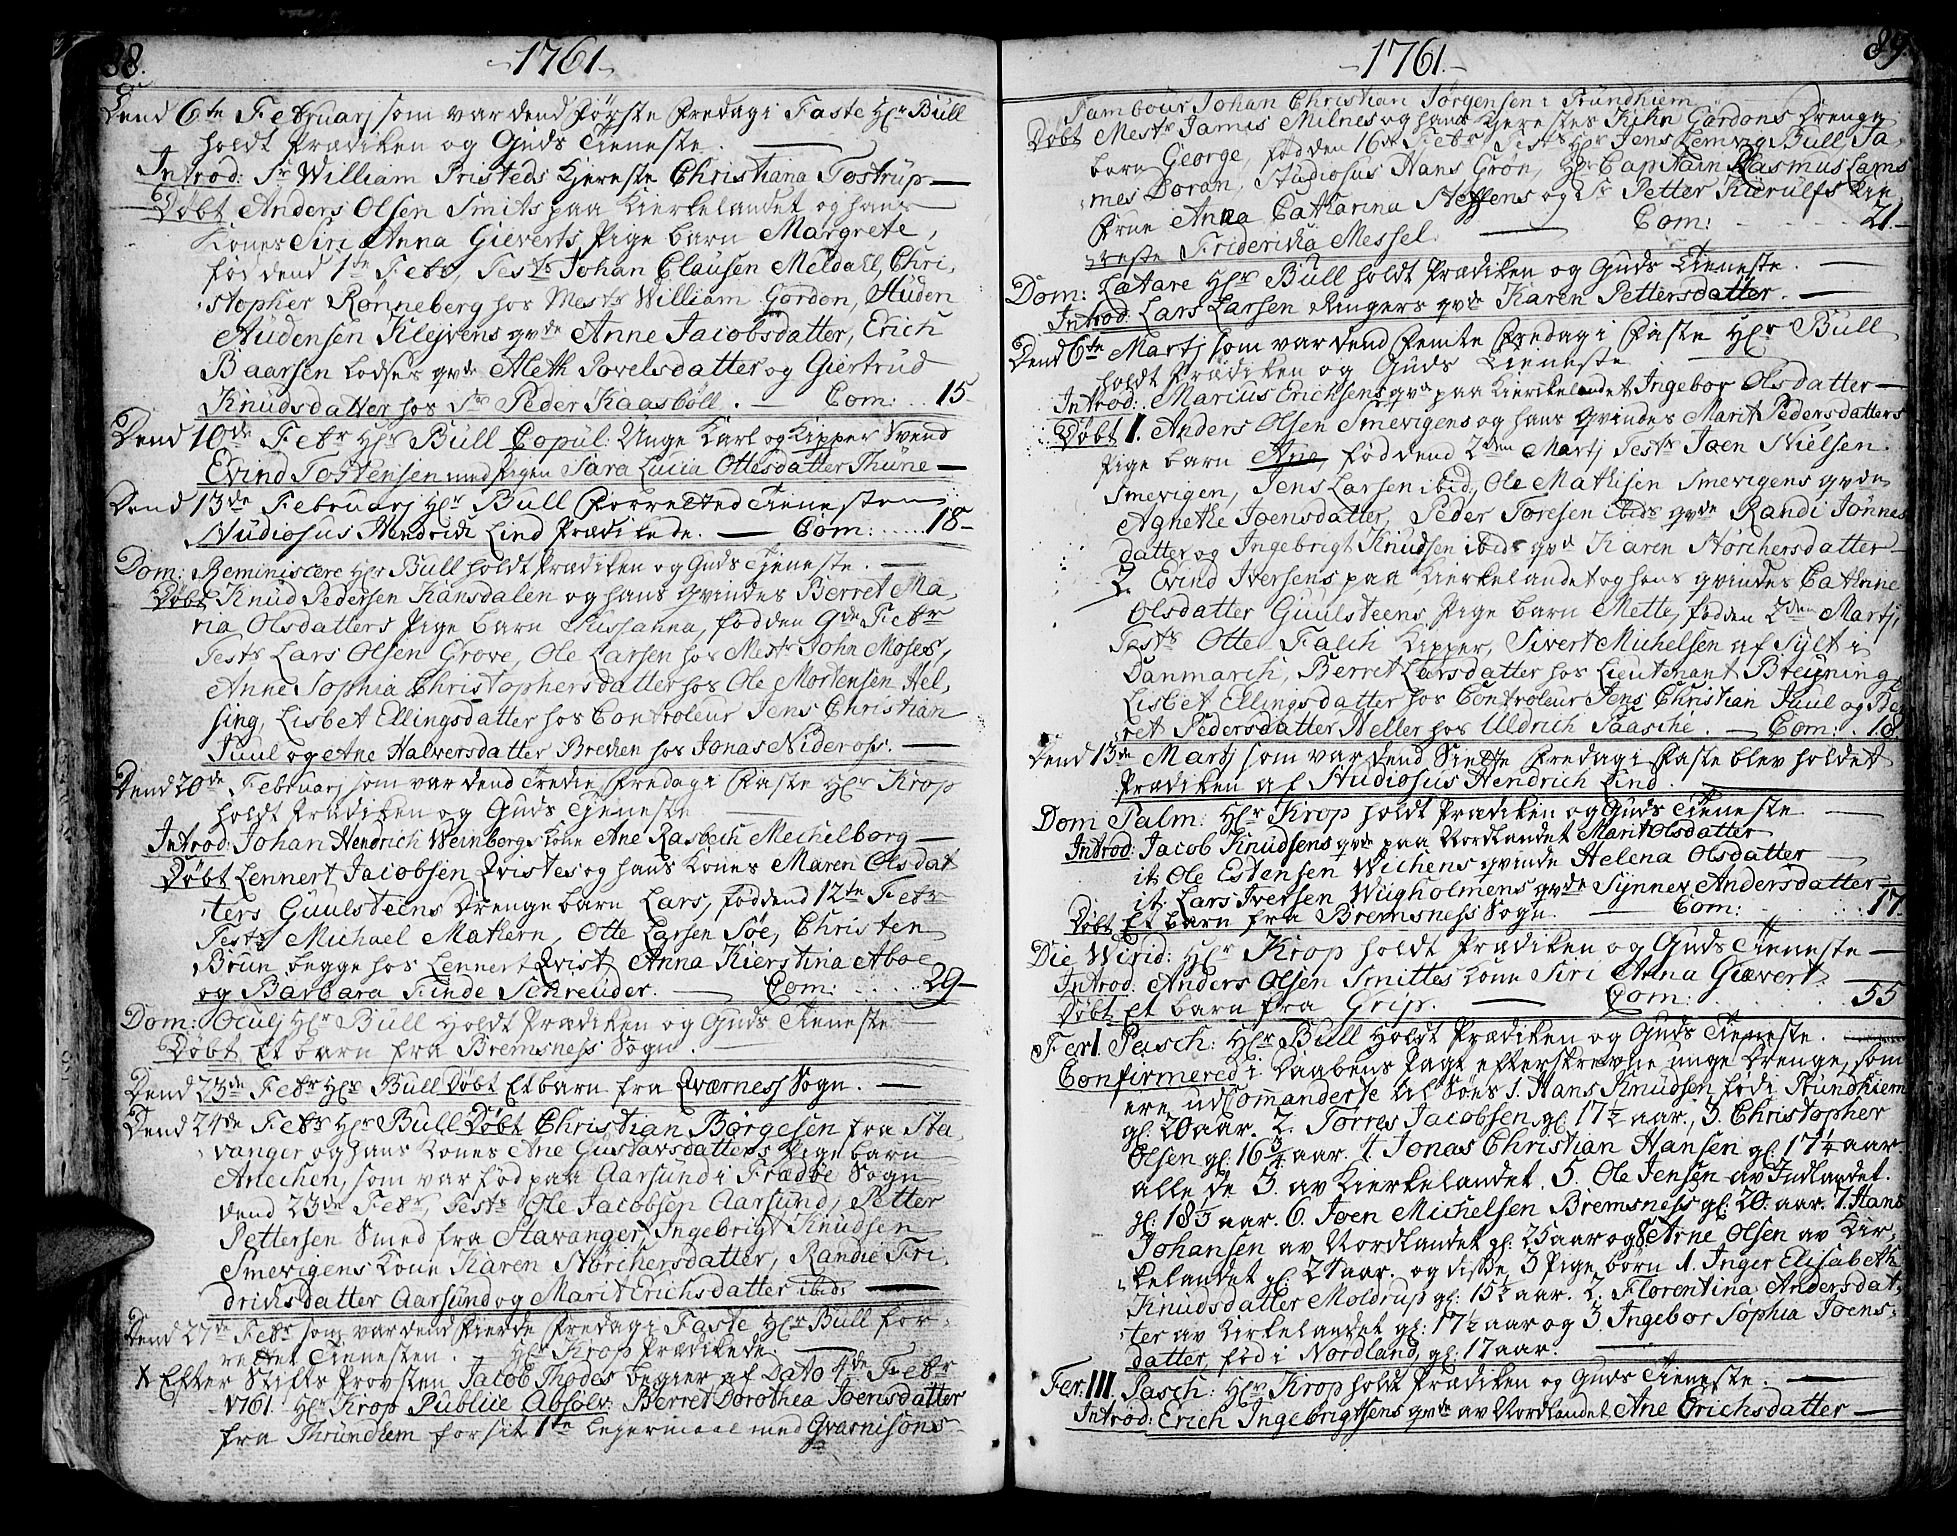 88.
-1761-
Dend 6te Februarj som var dend første Fredag i Faste Hr Bull
holdt Prædiken og Guds Tieneste.
Introd: Sr William Pristeds Kiereste Christiana Tostrup
Døbt Anders Olsen Smits paa Kierkelandet og hans
Kones Siri Anna Gieverts Pige barn Margrete,
fød dend 1te Febr, Tests Johan Clausen Meldahl, Chri,
stopher Rønneberg hos Mestr William Gordon, Huden
Audensen Klejvens qvde Anne Jacobsdatter, Erich
Baarsen Lodses qvde Aleth Povelsdatter og Giertrud
Knudsdatter hos Sr Peder Kaasbøll. Com: 15
Dend 10de Febr Hr Bull Copul: Unge Karl og Kipper Svend
Evind Tostensen med Pigen Sara Lucia Ottesdatter Thune
Dend 13de Februarj Hr Bull Forretted Tienesten
Studiosus Hendrich Lind Prædikede. Com: 18
Dom: Reminiscere Hr Bull holdt Prædiken og Guds Tieneste.
Døbt Knud Pedersen Kansdalen og hans Qvindes Berret Ma,
ria Olsdatters Pige barn Susanna, fødden 9de Febr
Tests Lars Olsen Grove, Ole Larsen hos Mestr John Moses,
Anne Sophia Christophersdatter hos Ole Mortensen Hel,
sing, Lisbet Ellingsdatter hos Controleur Jens Christian
Juul og Ane Halversdatter Brechen hos Jonas Nideross.
Dend 20de Februarj som var dend Tredie Fredag i Faste Hr Krop
holdt Prædiken og Guds Tieneste
Introd: Johan Hendrich Weinbergs Kone Ane Rasbech Mechelborg
Døbt Lennert Jacobsen Qvistes og hans Kones Maren Olsdat
ters Guulsteens Drenge barn Lars, fød dend 12te Febr
Tests Michael Mathern, Otte Larsen Søe, Christen
Bruun begge hos Lennert Qvist, Anna Kierstina Aboe
og Barbara Finde Schreuder. Com: 29
Dom: Oculj Hr Bull Holdt Prædiken og Guds Tieneste
Døbt Et barn fra Bremsness Sogn.
Dend 23de Febr Hr Bull Døbt Et barn fra Qværness Sogn.
Dend 24de Febr Hr Bull Døbt Christian Børgesen fra Sta,
vanger og hans Kones Ane Gustavsdatters Pige barn
Anechen, som var fød paa Aarsund i Frædøe Sogn
dend 23de Febr, Tests Ole Jacobsen Aarsund, Petter
Pettersen Smed fra Stavanger, Ingebrigt Knudsen
Smevigens Kone Karen Størchersdatter, Randie Fri,
drichsdatter Aarsund og Marit Erichsdatter ibid:
Dend 27de Febr som var dend Fierde Fredag i Faste Hr Bull for-
rettet Tienesten. Hr Krop Prædikede.
X Efter Stifts Provsten Jacob Thodes begier af Dato 4de Febr
1761 Hr Krop Publice Absolv: Berret Dorothea Joensdatter
fra Thrundhem for sit 1te Lejermaal med Gvarnisons-
89.
-1761.-
Tambour Johan Christian Jørgensen i Trundhiem
Døbt Mestr Jamis Milnes og hans Kierestes Kihn Gardons Drenge
barn George, fødden 16de Febr Tests Hr Jens Lemvig Bull, Ja,
mes Doran, Studiosus Hans Grøn, Hr Capitain Rasmus Lams
Frue Anna Catharina Steffens og Sr Petter Kierulfs Kie
reste Friderica Messel. Com: 21
Dom: Lætare Hr Bull holdt Prædiken og Guds Tieneste.
Introd: Lars Larsen Ringers qvde Karen Pettersdatter.
Dend 6te Martj som var dend Femte Fredag i Faste Hr Bull
holdt Prædiken og Guds Tieneste
Introd: Marius Erichsens qvde paa Kierkelandet Ingebor Olsdatter
Døbt 1. Anders Olsen Smevigens og hans Qvindes Marit Pedersdatters
Pige barn Ane, fød dend 2den Martj Tests Joen Nielsen
Smevigen, Jens Larsen ibid, Ole Mathisen Smevigens qvde
Agnethe Joensdatter, Peder Toresen ibids qvde Randi Jonnes
datter og Ingebrigt Knudsen ibids qvd Karen Størchersdatter
2. Evind Iversens paa Kierkelandet og hans qvindes Cathrine
Olsdatter Guulsteens Pige barn Mette, fødden 2den Martj,
Tests Otte Falch Kipper, Sivert Michelsen af Sylt i
Danmarch, Berret Larsdatter hos Lieutenant Breyning,
Lisbet Ellingsdatter hos Controleur Jens Christian Juul og Be,
ret Pedersdatter Heller hos Uldrich Paasche. Com: 18
Dend 13de Martj som var dend Siette Fredag i Faste blev holdet
Prædiken af Studiosus Hendrich Lind.
Dom Palm: Hr Krop holdt Prædiken og Guds Tieneste
Introd: Jacob Knudsens qvde paa Nordlandet Marit Olsdatter
it: Ole Estensen Wichens qvinde Helena Olsdatter
it: Lars Iversen Wugholmens qvde Synnev Andersdatter
Døbt Et barn fra Bremsness Sogn. Com: 17
Die Virid: Hr Krop holdt Prædiken og Guds Tieneste
Introd: Anders Olsen Smittes Kone Siri Anna Giævert.
Døbt Et barn fra Grip. Com: 55
Fer I. Pasch: Hr Bull Holdt Prædiken og Guds Tieneste.
Confirmered i Daabens Pagt efterskrevne unge Drenge, som
ere udcomanderte til Søes 1. Hans Knudsen fød i Trundhiem
gl. 20 aar. 2. Torres Jacobsen gl. 17½ aar, 3. Christopher
Olsen gl. 16¾ aar. 4 Jonas Christian Hansen gl. 17¼ aar
alle de 3. av Kierkelandet. 5. Ole Jensen av Indlandet.
gl: 18½ aar. 6. Joen Michelsen Bremsness gl: 20. aar. 7. Hans
Johansen av Nordlandet gl: 25 aar og 8 Arne Olsen av Kir-
kelandet gl: 24 aar. og disse 3 Pige børn 1. Inger Elisabeth
Knudsdatter Moldrup gl: 15½ aar. 2. Florentina Andersdat,
ter av Kirkelandet gl: 17½ aar og 3. Ingebor Sophia Joens-
datter, fød i Nordland, gl: 17 aar.
Fer: III. Pasch: Hr Krop holdt Prædiken og Guds Tieneste.
Introd: Erich Ingebrigtsens qvde av Nordlandet Ane Erichsdatter